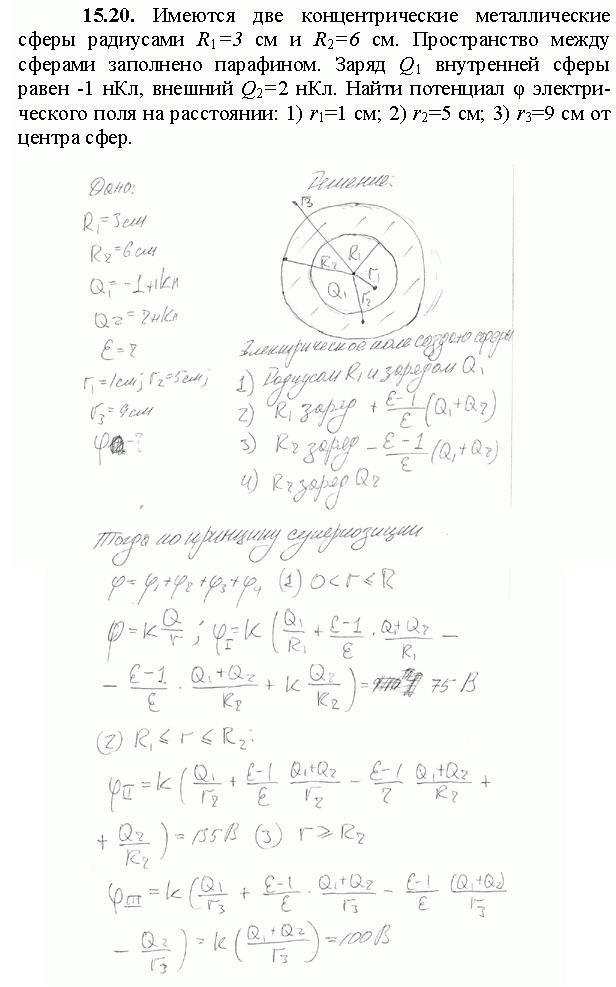 15.20. Имеются две концентрические металлические
сферы радиусами R₁=3 см и R₂=6 см. Пространство между
сферами заполнено парафином. Заряд Q₁ внутренней сферы
равен -1 нКл, внешний Q₂=2 нКл. Найти потенциал φ электри-
ческого поля на расстоянии: 1) r₁=1 см; 2) r₂=5 см; 3) r₃=9 см от
центра сфер.
Дано:
R₁=3см
R₂=6см
Q₁=-1нКл
Q₂=2нКл
ε=2
r₁=1см; r₂=5см;
r₃=9см
φ-?
Решение:
r₃
R₁
R₂
r₁
Q₁
r₂
Электрическое поле создают сферы
1) Радиусом R₁ и зарядом Q₁
2) R₁ заряд + (ε-1)/ε (Q₁+Q₂)
3) R₂ заряд - (ε-1)/ε (Q₁+Q₂)
4) R₂ заряд Q₂
Тогда по принципу суперпозиции
φ=φ₁+φ₂+φ₃+φ₄ (1) 0<r≤R
φ=k Q/r; φ_I=k(Q₁/R₁ + (ε-1)/ε · (Q₁+Q₂)/R₁ -
- (ε-1)/ε · (Q₁+Q₂)/R₂ + k Q₂/R₂)= 75 В
(2) R₁ ≤ r ≤ R₂:
φ_II=k(Q₁/r₂ + (ε-1)/ε (Q₁+Q₂)/r₂ - (ε-1)/2 (Q₁+Q₂)/R₂ +
+ Q₂/R₂) = 135В (3) r ≥ R₂
φ_III=k(Q₁/r₃ + (ε-1)/ε · (Q₁+Q₂)/r₃ - (ε-1)/ε (Q₁+Q₂)/r₃
- Q₂/r₃) = k((Q₁+Q₂)/r₃)=100В